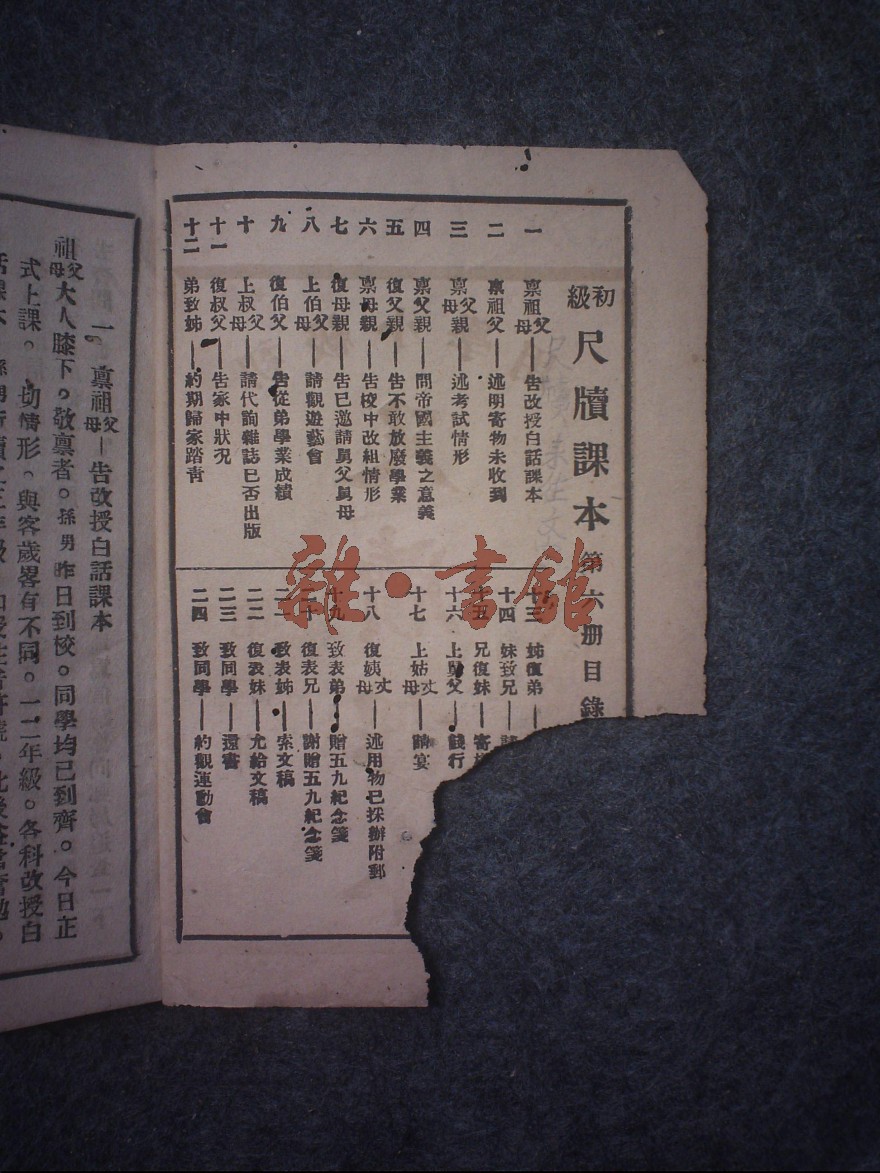 初級 尺牘課本第六册目錄
一 禀祖父母——告改授白話課本
二 禀祖父——述明寄物未收到
三 禀父母親——述考試情形
四 禀父親——問帝國主義之意義
五 復父親——告不敢放廢學業
六 禀母親——告校中改組情形
七 復母親——告已邀請舅父舅母
八 上伯父母——請觀遊藝會
九 復伯父——告從弟學業成績
十 上叔父母——請代詢雜誌已否出版
十一 復叔父——告家中狀况
十二 弟致姊——約期歸家踏青
十三 姊復弟——
十四 妹致兄——
十五 兄復妹——寄
十六 上舅父——餞行
十七 上姑丈母——請宴
十八 復姨丈母——述用物已採辦附郵
十九 致表弟——贈五九紀念箋
二十 復表兄——謝贈五九紀念箋
二一 致表姊——索文稿
二二 復表妹——允給文稿
二三 致同學——還書
二四 致同學——約觀運動會
雜·書館
一 禀祖父母——告改授白話課本
祖父母大人膝下。敬禀者。孫男昨日到校。同學均已到齊。今日正
式上課。切情形。與客歲畧有不同。一二年級。各科改授白